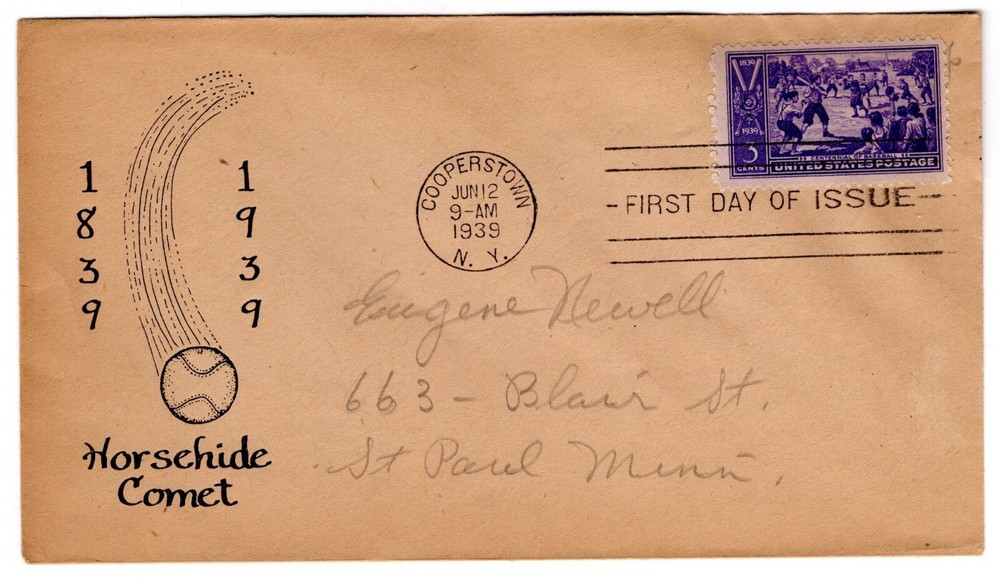 1839
1939
Horsehide
Comet
COOPERSTOWN
JUN 12
9-AM
1939
N. Y.
1839
1939
3
CENTS
CENTENNIAL OF BASEBALL
UNITED STATES POSTAGE
FIRST DAY OF ISSUE
Eugene Newell
663 - Blair St.
St Paul Minn.